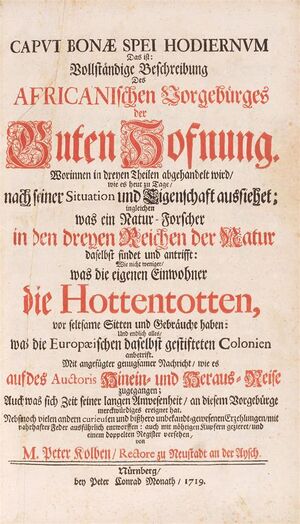 CAPVT BONÆ SPEI HODIERNVM
Das ist:
Vollständige Beschreibung
Des
AFRICANIschen Vorgebürges
der
Guten Hofnung.
Worinnen in dreyen Theilen abgehandelt wird/
wie es heut zu Tage/
nach seiner Situation und Eigenschaft aussiehet;
ingleichen
was ein Natur-Forscher
in den dreyen Reichen der Natur
daselbst findet und antrifft:
Wie nicht weniger/
was die eigenen Einwohner
die Hottentotten,
vor seltsame Sitten und Gebräuche haben:
Und endlich alles/
was die Europæischen daselbst gestifteten Colonien
anbetrift.
Mit angefügter genugsamer Nachricht/ wie es
auf des Auctoris Hinein- und Heraus-Reise
zugegangen;
Auch was sich Zeit seiner langen Anwesenheit/ an diesem Vorgebürge
merckwürdiges ereignet hat.
Nebst noch vielen andern curieusen und bißhero unbekandt-gewesenen Erzehlungen/ mit
wahrhafter Feder ausführlich entworffen: auch mit nöhtigen Kupfern gezieret/ und
einem doppelten Register versehen,
von
M. Peter Kolben/ Rectore zu Neustadt an der Aysch.
Nürnberg/
bey Peter Conrad Monath/ 1719.